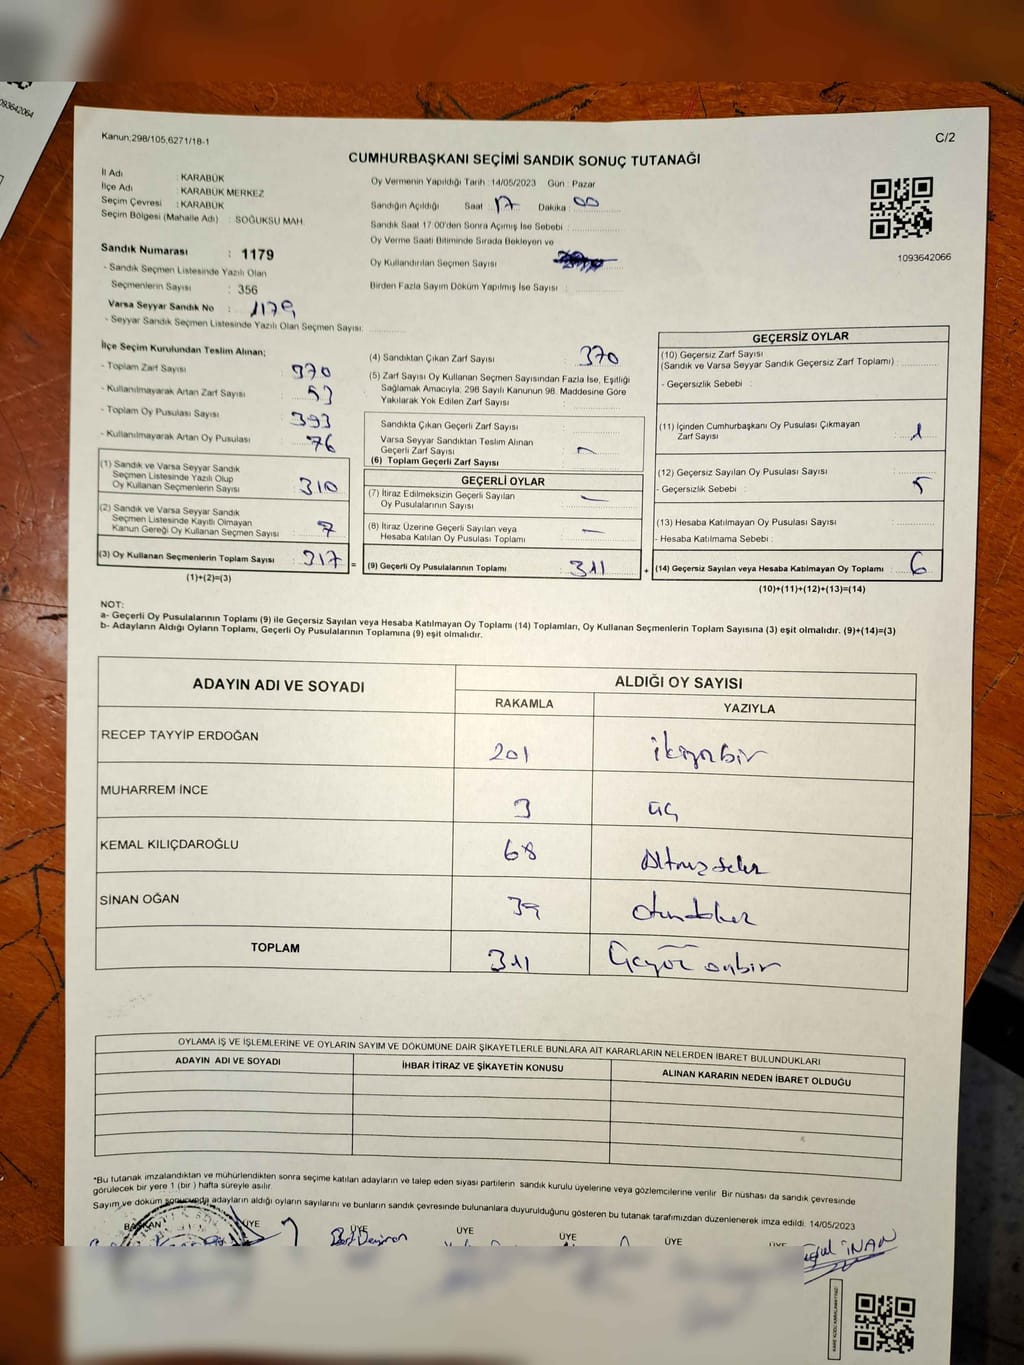 093642064
Kanun:298/105,6271/18-1
C/2
CUMHURBAŞKANI SEÇİMİ SANDIK SONUÇ TUTANAĞI
İl Adı : KARABÜK
İlçe Adı : KARABÜK MERKEZ
Seçim Çevresi : KARABÜK
Seçim Bölgesi (Mahalle Adı) : SOĞUKSU MAH.
Oy Vermenin Yapıldığı Tarih :14/05/2023 Gün : Pazar
Sandığın Açıldığı Saat : 17 Dakika : 00
Sandık Saat 17.00'den Sonra Açılmış İse Sebebi :
Oy Verme Saati Bitiminde Sırada Bekleyen ve
Oy Kullandırılan Seçmen Sayısı
Birden Fazla Sayım Döküm Yapılmış İse Sayısı :
1093642066
Sandık Numarası : 1179
- Sandık Seçmen Listesinde Yazılı Olan
Seçmenlerin Sayısı : 356
Varsa Seyyar Sandık No : 1179
- Seyyar Sandık Seçmen Listesinde Yazılı Olan Seçmen Sayısı:
İlçe Seçim Kurulundan Teslim Alınan;
- Toplam Zarf Sayısı : 370
- Kullanılmayarak Artan Zarf Sayısı : 53
- Toplam Oy Pusulası Sayısı : 393
- Kullanılmayarak Artan Oy Pusulası : 76
(1) Sandık ve Varsa Seyyar Sandık
Seçmen Listesinde Yazılı Olup
Oy Kullanan Seçmenlerin Sayısı : 310
(2) Sandık ve Varsa Seyyar Sandık
Seçmen Listesinde Kayıtlı Olmayan
Kanun Gereği Oy Kullanan Seçmen Sayısı : 7
(3) Oy Kullanan Seçmenlerin Toplam Sayısı : 317 =
(1)+(2)=(3)
(4) Sandıktan Çıkan Zarf Sayısı : 370
(5) Zarf Sayısı Oy Kullanan Seçmen Sayısından Fazla İse, Eşitliği
Sağlamak Amacıyla; 298 Sayılı Kanunun 98. Maddesine Göre
Yakılarak Yok Edilen Zarf Sayısı :
Sandıkta Çıkan Geçerli Zarf Sayısı :
Varsa Seyyar Sandıktan Teslim Alınan
Geçerli Zarf Sayısı : -
(6) Toplam Geçerli Zarf Sayısı
GEÇERLİ OYLAR
(7) İtiraz Edilmeksizin Geçerli Sayılan
Oy Pusulalarının Sayısı : -
(8) İtiraz Üzerine Geçerli Sayılan veya
Hesaba Katılan Oy Pusulası Toplamı : -
(9) Geçerli Oy Pusulalarının Toplamı : 311 +
GEÇERSİZ OYLAR
(10) Geçersiz Zarf Sayısı
(Sandık ve Varsa Seyyar Sandık Geçersiz Zarf Toplamı) :
- Geçersizlik Sebebi :
(11) İçinden Cumhurbaşkanı Oy Pusulası Çıkmayan
Zarf Sayısı : 1
(12) Geçersiz Sayılan Oy Pusulası Sayısı :
- Geçersizlik Sebebi : 5
(13) Hesaba Katılmayan Oy Pusulası Sayısı :
- Hesaba Katılmama Sebebi :
(14) Geçersiz Sayılan veya Hesaba Katılmayan Oy Toplamı : 6
(10)+(11)+(12)+(13)=(14)
NOT:
a- Geçerli Oy Pusulalarının Toplamı (9) ile Geçersiz Sayılan veya Hesaba Katılmayan Oy Toplamı (14) Toplamları, Oy Kullanan Seçmenlerin Toplam Sayısına (3) eşit olmalıdır. (9)+(14)=(3)
b- Adayların Aldığı Oyların Toplamı, Geçerli Oy Pusulalarının Toplamına (9) eşit olmalıdır.
ADAYIN ADI VE SOYADI ALDIĞI OY SAYISI
RAKAMLA YAZIYLA
RECEP TAYYİP ERDOĞAN 201 ikiyüzbir
MUHARREM İNCE 3 üç
KEMAL KILIÇDAROĞLU 68 Altmışsekiz
SİNAN OĞAN 39 otuzdokuz
TOPLAM 311 üçyüz onbir
OYLAMA İŞ VE İŞLEMLERİNE VE OYLARIN SAYIM VE DÖKÜMÜNE DAİR ŞİKAYETLERLE BUNLARA AİT KARARLARIN NELERDEN İBARET BULUNDUKLARI
ADAYIN ADI VE SOYADI İHBAR İTİRAZ VE ŞİKAYETİN KONUSU ALINAN KARARIN NEDEN İBARET OLDUĞU
*Bu tutanak imzalandıktan ve mühürlendikten sonra seçime katılan adayların ve talep eden siyasi partilerin sandık kurulu üyelerine veya gözlemcilerine verilir. Bir nüshası da sandık çevresinde
görülecek bir yere 1 (bir ) hafta süreyle asılır.
Sayım ve döküm sonucunda adayların aldığı oyların sayılarını ve bunların sandık çevresinde bulunanlara duyurulduğunu gösteren bu tutanak tarafımızdan düzenlenerek imza edildi. 14/05/2023
BAŞKAN ÜYE ÜYE ÜYE ÜYE ÜYE ÜYE
İNAN